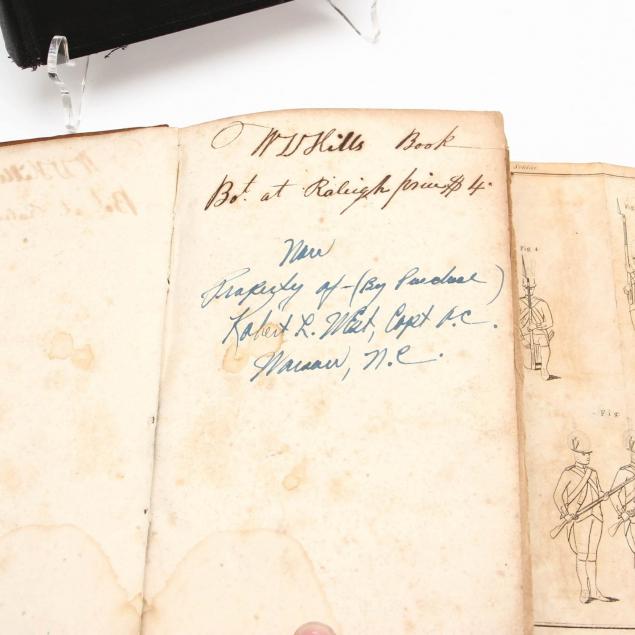 W D Hills Book
Bot. at Raleigh price $4.
Now
Property of - (By Purchase)
Robert L. West, Capt O.C.
Warsaw, N.C.
Fig. 4
Fig